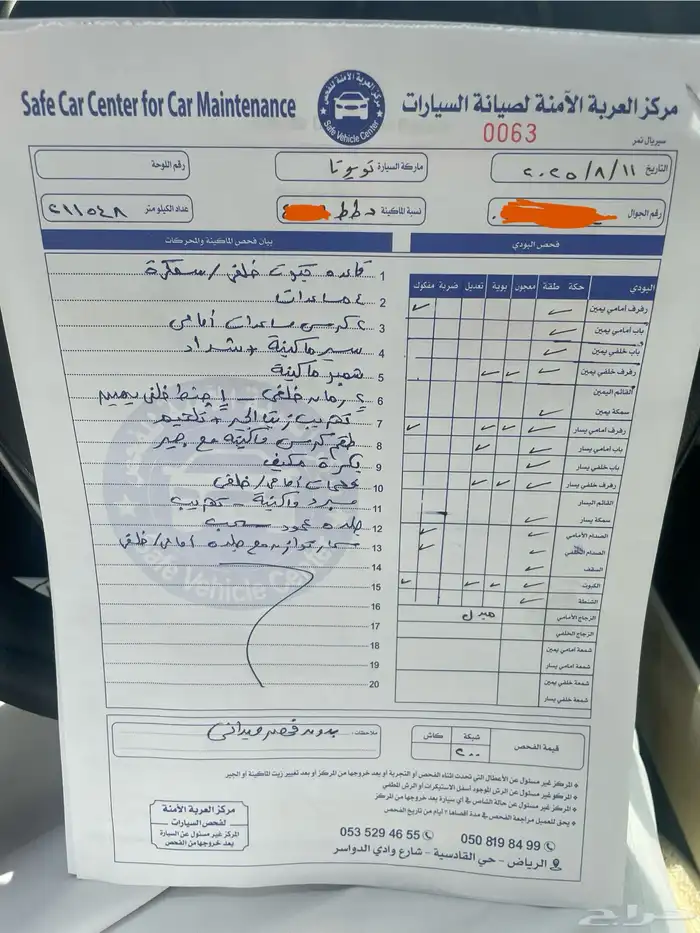 Safe Car Center for Car Maintenance
مركز العربة الآمنة للفحص
Safe Vehicle Center
مركز العربة الآمنة لصيانة السيارات
0063
سيريال نمبر
التاريخ ٢٠٢٥/٨/١١
ماركة السيارة تويوتا
رقم اللوحة
رقم الجوال
نسبة الماكينة
عداد الكيلو متر ٢١١٥٤٨
فحص البودي
بيان فحص الماكينة والمحركات
البودي حكة طقة معجون بوية تعديل ضربة مفكوك
رفرف أمامي يمين
باب أمامي يمين
باب خلفي يمين
رفرف خلفي يمين
القائم اليمين
سمكة يمين
رفرف أمامي يسار
باب أمامي يسار
باب خلفي يسار
رفرف خلفي يسار
القائم اليسار
سمكة يسار
الصدام الأمامي
الصدام الخلفي
السقف
الكبوت
الشنطة
الزجاج الأمامي مبدل
الزجاج الخلفي
شمعة أمامي يمين
شمعة أمامي يسار
شمعة خلفي يمين
شمعة خلفي يسار
1
2 ٤ مساعدات
3 ٢ كرسي مساعدات أمامي
4 سير ماكينة + شداد
5 ماكينة
6
7
8 طقم كراسي ماكينة مع جير
9 بكرة مكيف
10 أمامي / خلفي
11 ماكينة - تهريب
12 جلدة عمود
13 مسمار توازن مع جلدة أمامي / خلفي
14
15
16
17
18
19
20
قيمة الفحص
شبكة كاش
٢٠٠
ملاحظات: بدون فحص ميداني
• المركز غير مسئول عن الأعطال التي تحدث اثناء الفحص أو التجربة أو بعد خروجها من المركز أو بعد تغيير زيت الماكينة أو الجير
• المركز غير مسئول عن الرش الموجود أسفل الاستيكرات أو الرش المطفي
• المركز غير مسئول عن حالة الشاص في أي سيارة بعد خروجها من المركز
• يحق للعميل مراجعة الفحص في مدة اقصاها ٢ أيام من تاريخ الفحص
مركز العربة الآمنة
لفحص السيارات
المركز غير مسئول عن السيارة
بعد خروجها من الفحص
050 819 84 99
053 529 46 55
الرياض - حي القادسية - شارع وادي الدواسر
حراج